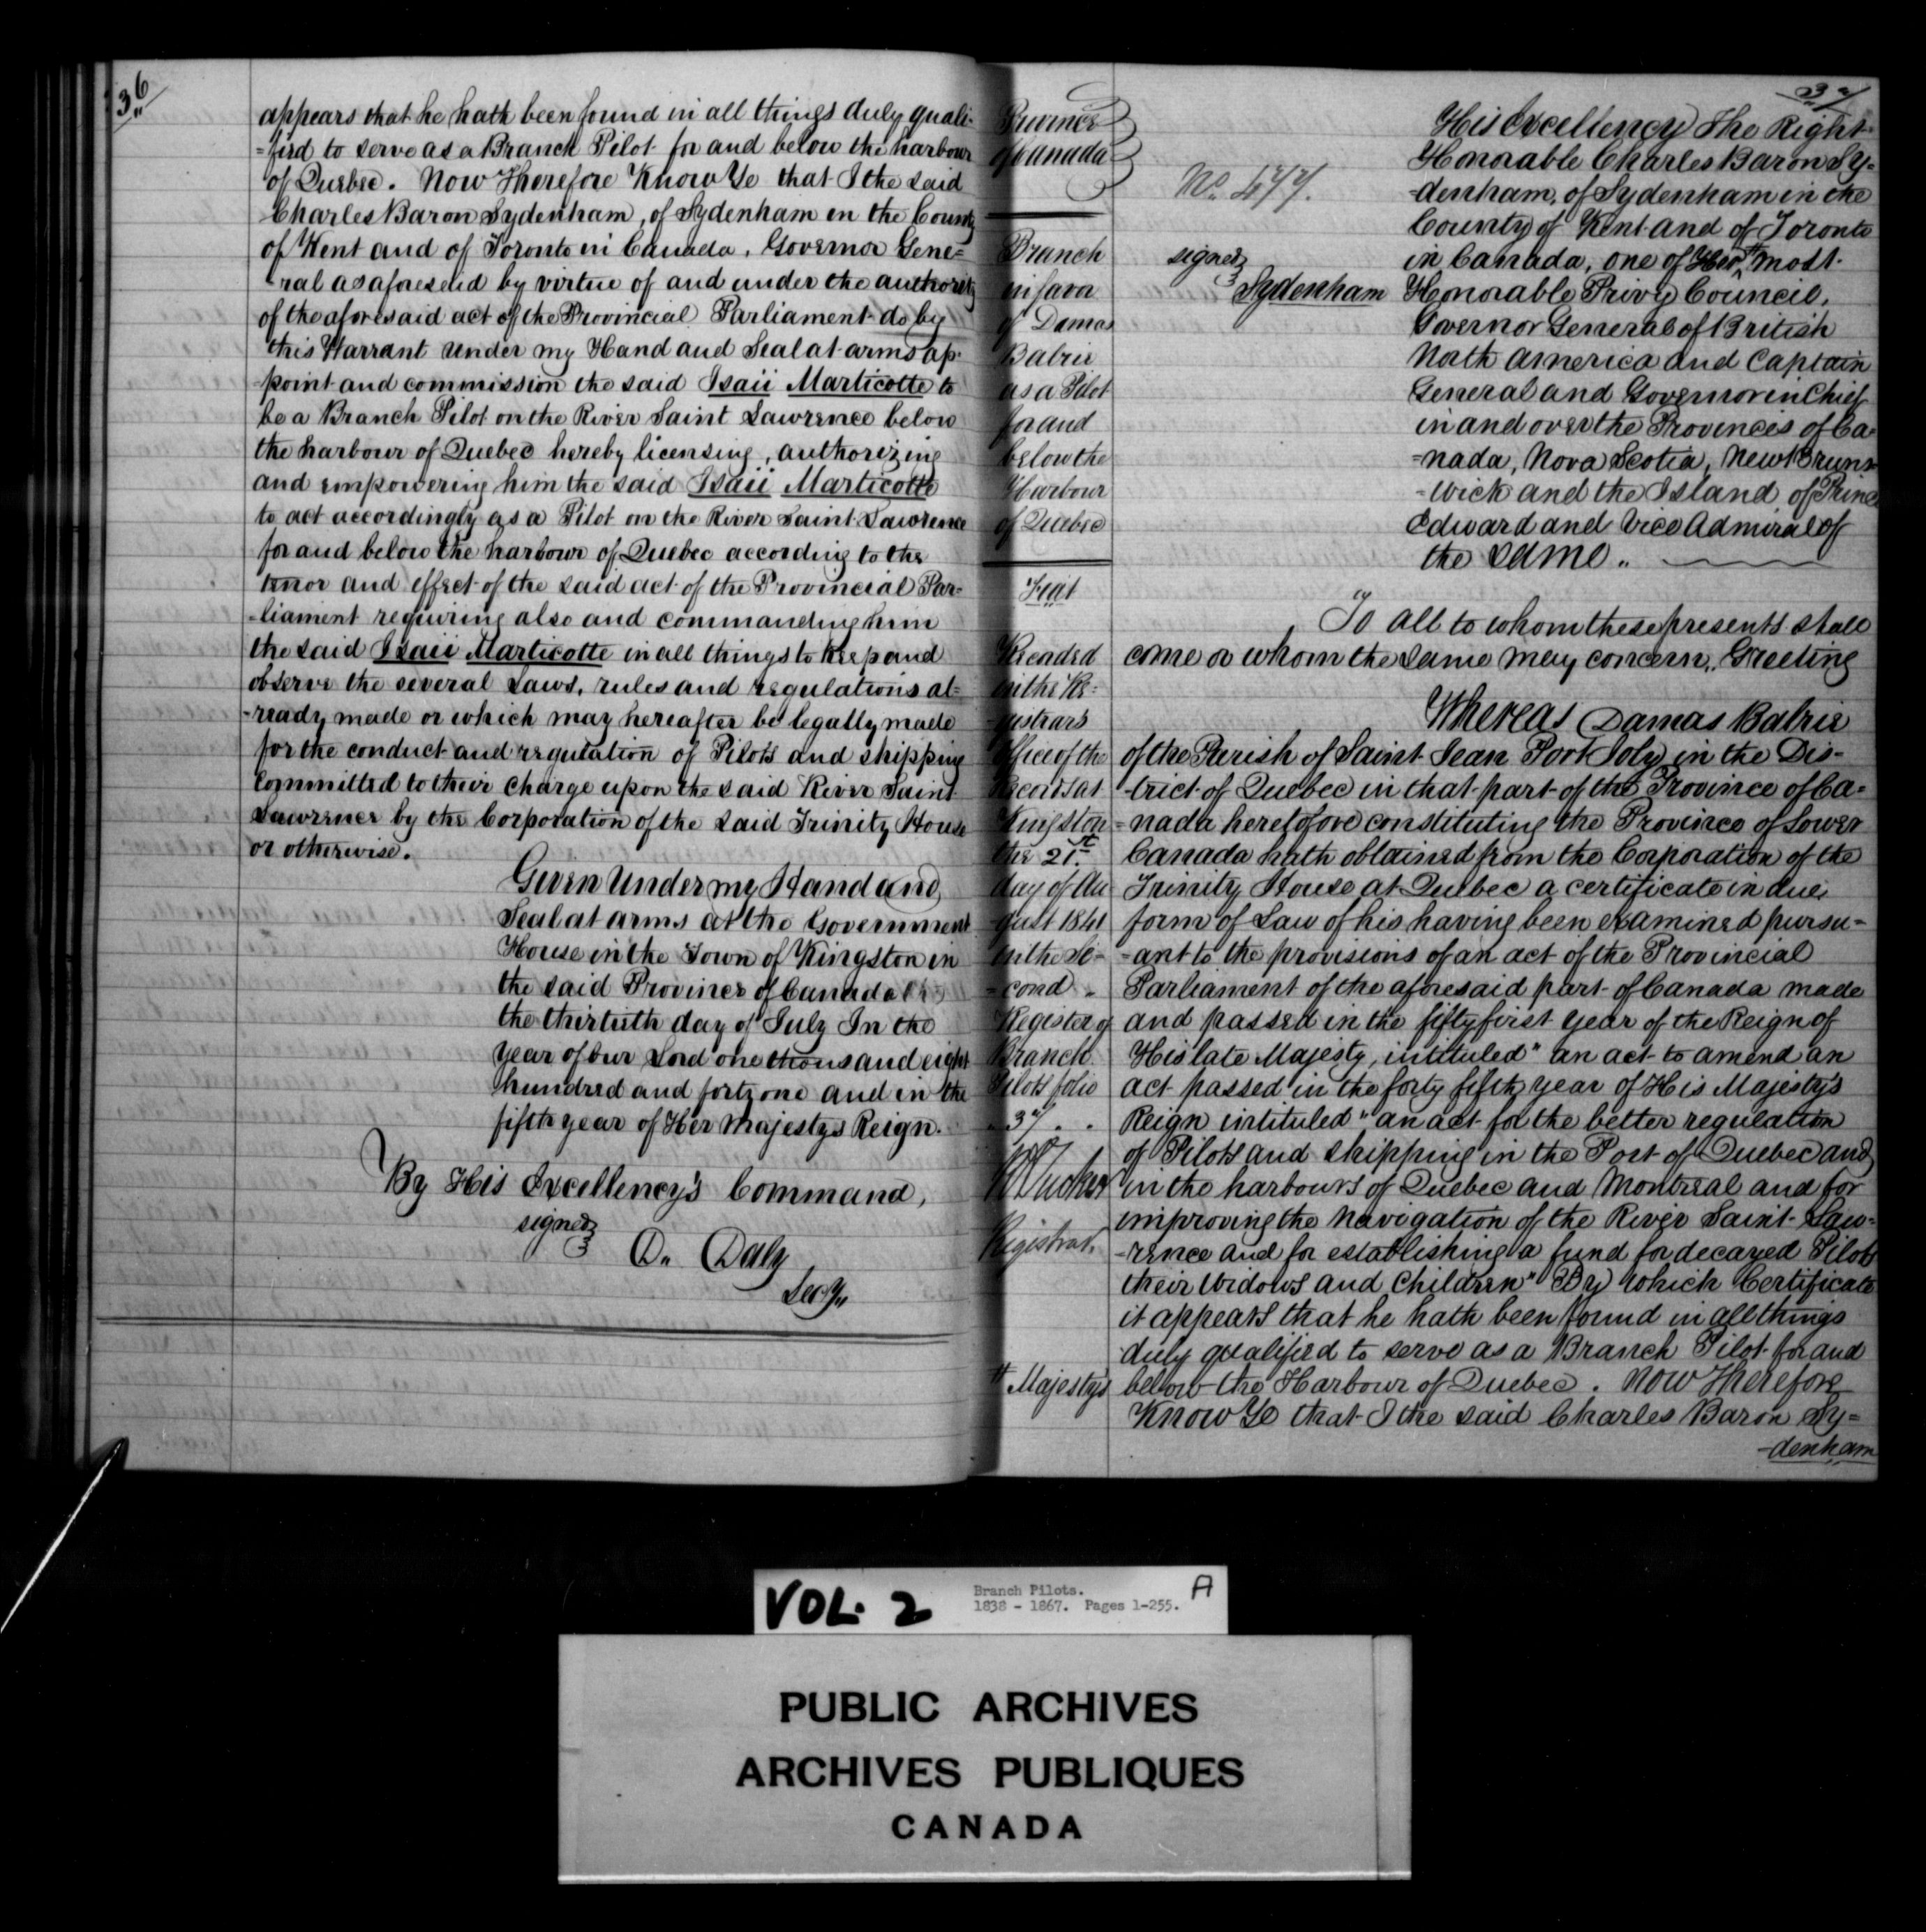 36
appears that he hath been found in all things duly quali-
=fied to serve as a Branch Pilot for and below the harbour
of Quebec. Now Therefore Know Ye that I the said
Charles Baron Sydenham, of Sydenham in the County
of Kent and of Toronto in Canada, Governor Gene=
-ral as aforesaid by virtue of and under the authority
of the aforesaid act of the Provincial Parliament do by
this Warrant under my Hand and Seal at arms ap-
point and commission the said Isaii Marticotte to
be a Branch Pilot on the River Saint Lawrence below
the harbour of Quebec hereby licensing, authorizing
and empowering him the said Isaii Marticotte
to act accordingly as a Pilot on the River Saint Lawrence
for and below the harbour of Quebec according to the
tenor and effect of the said act of the Provincial Par=
-liament requiring also and commanding him
the said Isaii Marticotte in all things to keep and
observe the several Laws, rules and regulations al=
-ready made or which may hereafter be legally made
for the conduct and regulation of Pilots and shipping
Committed to their charge upon the said River Saint
Lawrence by the Corporation of the said Trinity House
or otherwise.
Given under my Hand and
Seal at arms at the Government
House in the Town of Kingston in
the said Province of Canada
the thirtieth day of July In the
year of our Lord one thousand eight
hundred and forty one and in the
fifth year of Her Majestys Reign.
By His Excellency's Command,
signed
D. Daly
Secy.
37
Province
of Canada
No. 477.
Branch
in favor
of Damas
Babrie
as a Pilot
for and
below the
Harbour
of Quebec
Fiat
Recorded
in the Re-
gistrar's
Office of the
Records at
Kingston
the 21st
day of Au
gust 1841
in the Se-
=cond
Register of
Branch
Pilots folio
37..
R Tucker
Registrar.
# Majesty's
signed
Sydenham
His Excellency The Right
Honorable Charles Baron Sy=
=denham, of Sydenham in the
County of Kent and of Toronto
in Canada, one of Her # most
Honorable Privy Council,
Governor General of British
North America and Captain
General and Governor in Chief
in and over the Provinces of Ca=
=nada, Nova Scotia, New Bruns
=wick and the Island of Prince
Edward and Vice Admiral of
the same..
To all to whom these presents shall
come or whom the same may concern, Greeting
Whereas Damas Babrie
of the Parish of Saint Jean Port Joly in the Dis-
-trict of Quebec in that part of the Province of Ca=
=nada heretofore constituting the Province of Lower
Canada hath obtained from the Corporation of the
Trinity House at Quebec a certificate in due
form of Law of his having been examined pursu=
=ant to the provisions of an act of the Provincial
Parliament of the aforesaid part of Canada made
and passed in the fifty first year of the Reign of
His late Majesty, intituled "an act to amend an
act passed in the forty fifth year of His Majesty's
Reign intituled "an act for the better regulation
of Pilots and shipping in the Port of Quebec and
in the harbours of Quebec and Montreal and for
improving the navigation of the River Saint Law=
-rence and for establishing a fund for decayed Pilots
their widows and children" By which Certificate
it appears that he hath been found in all things
duly qualified to serve as a Branch Pilot for and
below the Harbour of Quebec. Now Therefore
Know Ye that I the said Charles Baron Sy=
-denham
VOL. 2
Branch Pilots.
1838 - 1867. Pages 1-255.
A
PUBLIC ARCHIVES
ARCHIVES PUBLIQUES
CANADA